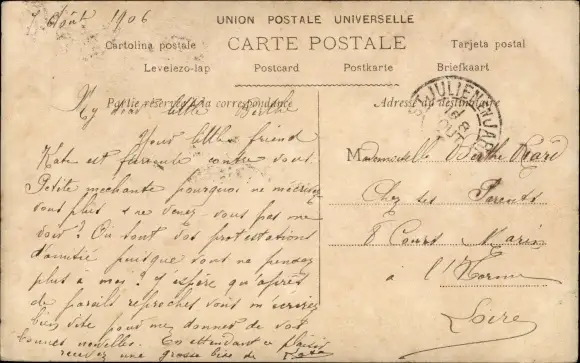 7 Août 1906
UNION POSTALE UNIVERSELLE
Cartolina postale CARTE POSTALE Tarjeta postal
Levelezo-lap Postcard Postkarte Briefkaart
Partie réservée à la correspondance
Adresse du destinataire
ST JULIEN-EN-JAREZ
My dear little Berthe
Your little friend
Kate est furieuse contre vous.
Petite mechante pourquoi ne m'écrivez
vous plus & ne venez-vous pas me
voir? Où sont vos protestations
d'amitié puisque vous ne pensez
plus à moi? J'espère qu'après
de pareils reproches vous m'écrirez
bien vite pour me donner de vos
bonnes nouvelles. En attendant le plaisir
recevez une grosse bise de Kate
Mademoiselle Berthe
Chez ses Parents
8 Cours Marin
à l'Horme
Loire